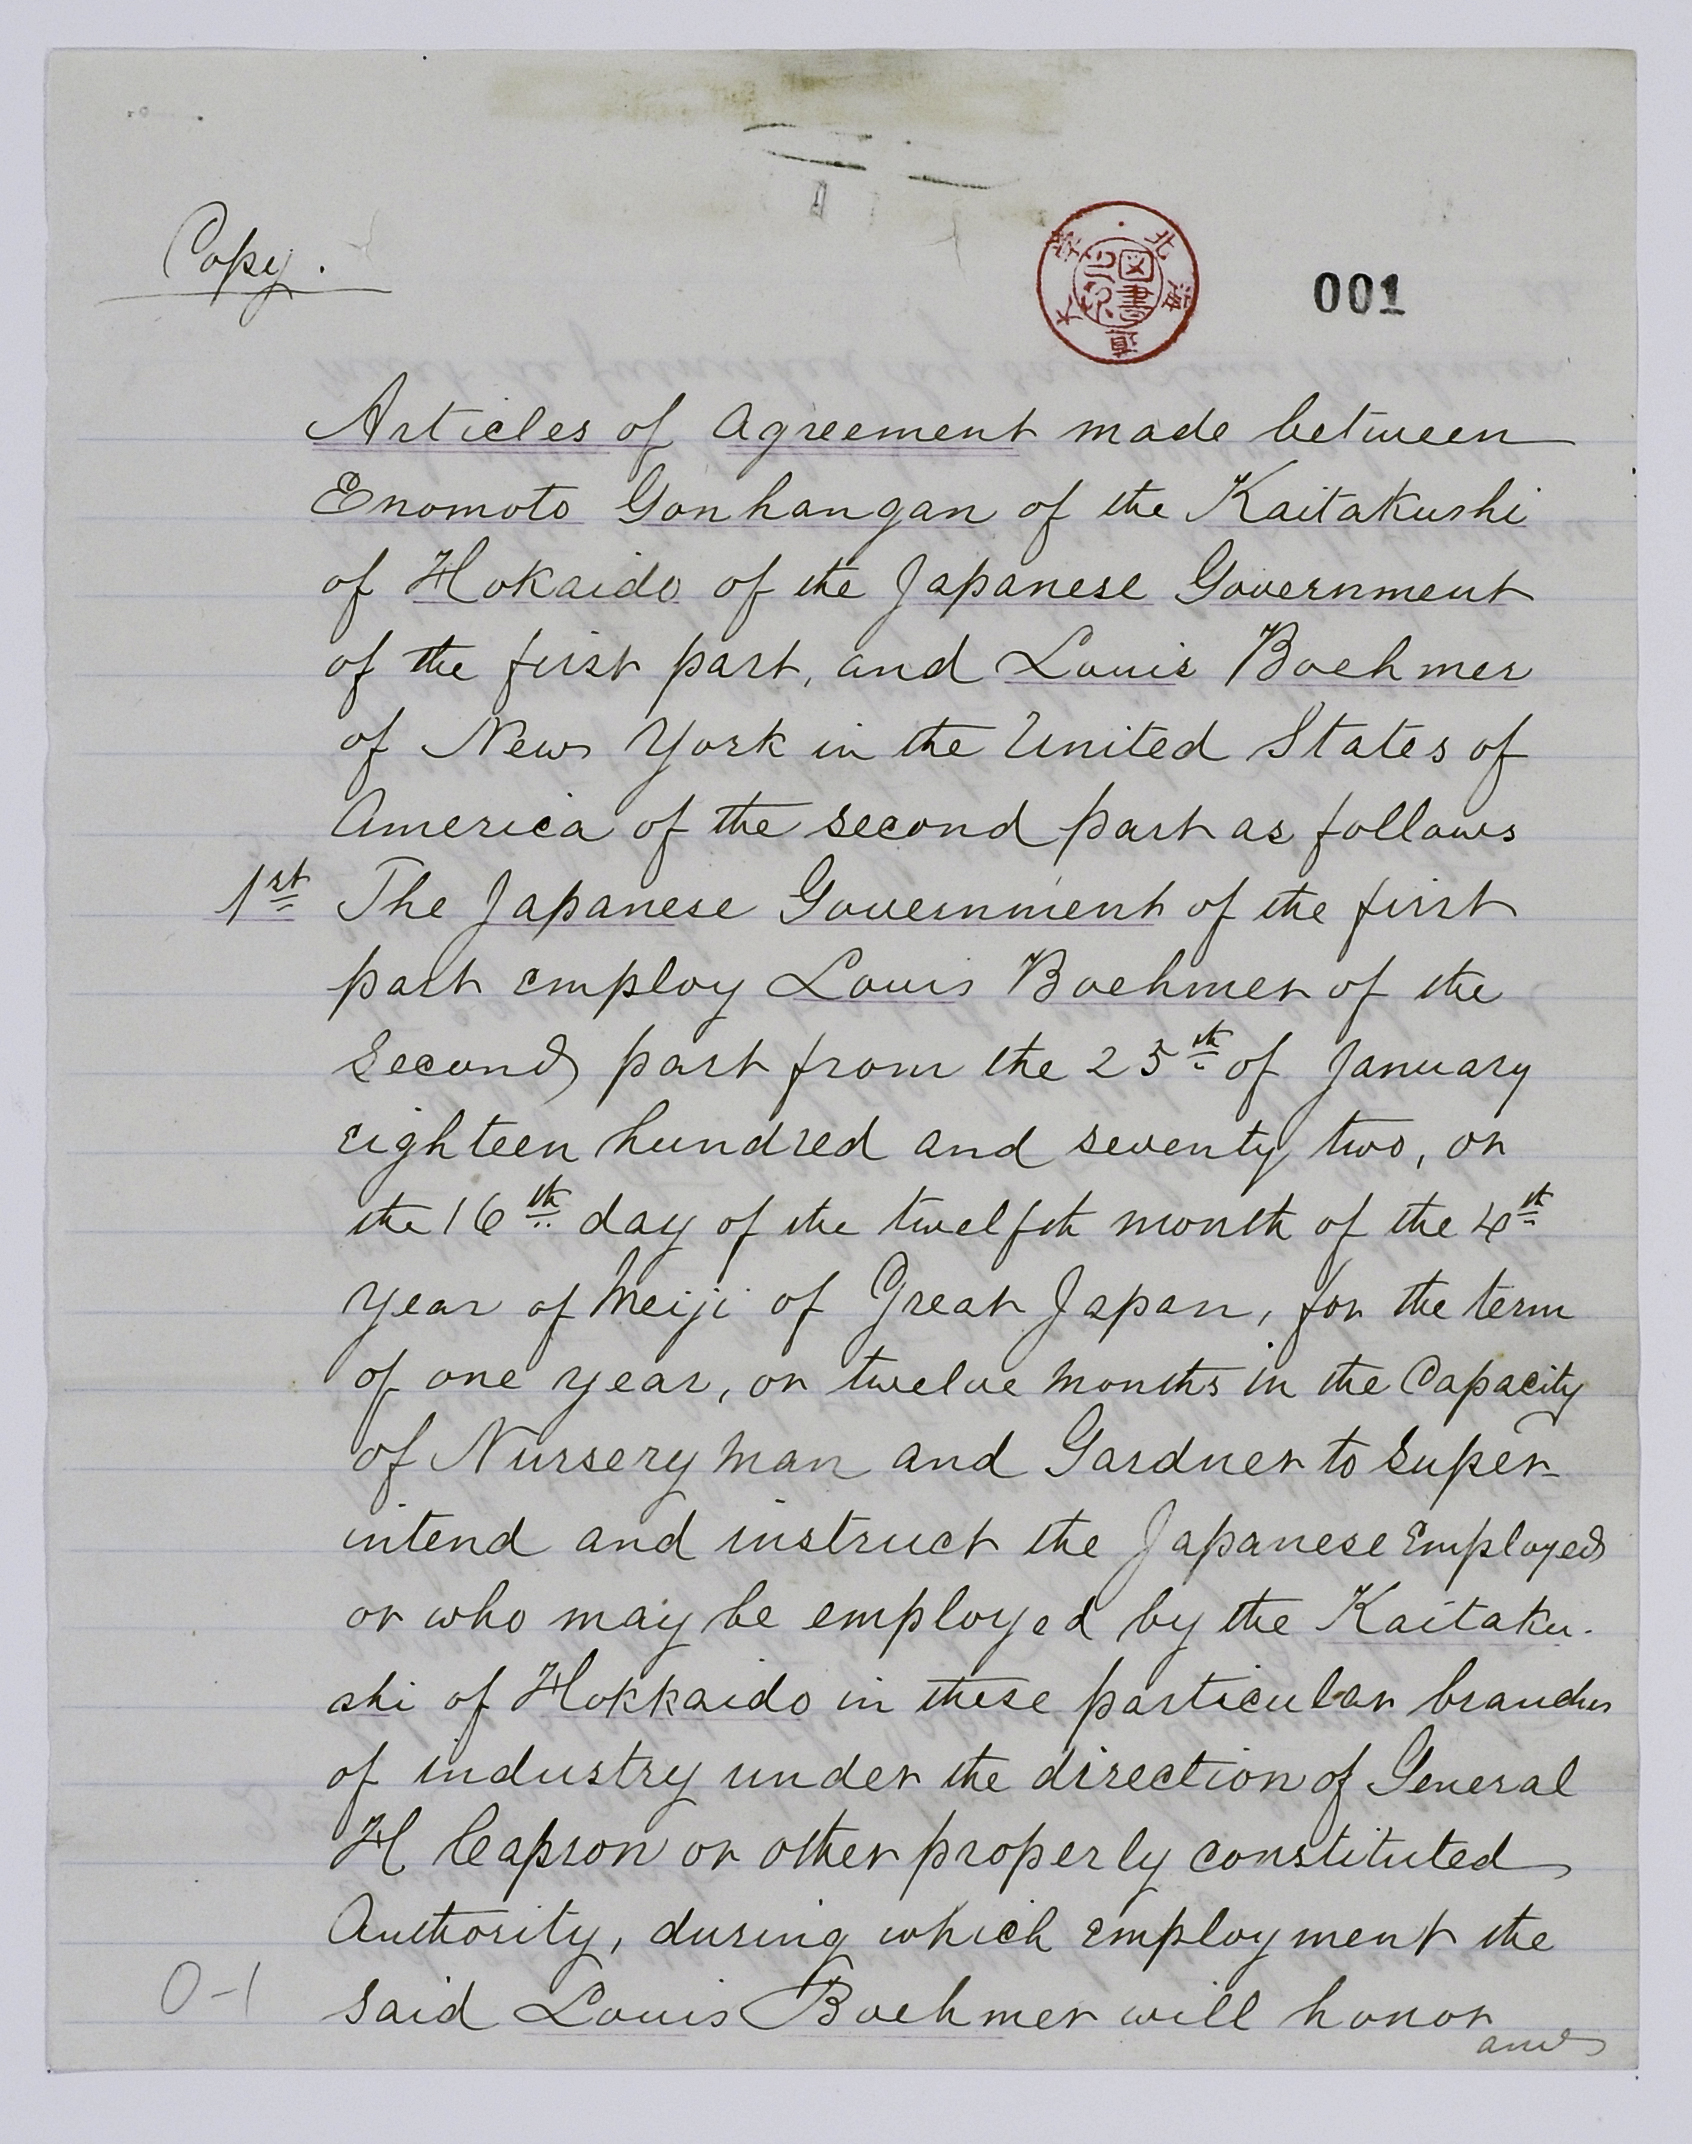 Copy.
北海道大学
図書之印
001
Articles of Agreement made between
Enomoto Gonhangan of the Kaitakushi
of Hokaido of the Japanese Government
of the first part, and Louis Boehmer
of New York in the United States of
America of the second part as follows
1st The Japanese Government of the first
part employ Louis Boehmer of the
Second part from the 25th of January
Eighteen hundred and seventy two, or
the 16th day of the twelfth month of the 4th
Year of Meiji of Great Japan, for the term
of one year, or twelve months in the Capacity
of Nurseryman and Gardner to Super-
intend and instruct the Japanese Employed
or who may be employed by the Kaitaku-
shi of Hokkaido in these particular branches
of industry under the direction of General
H Capron or other properly constituted
Authority, during which Employment the
said Louis Boehmer will honor
and
0-1